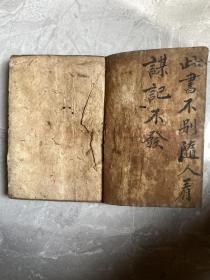 此書不別隨人看
謀記不發